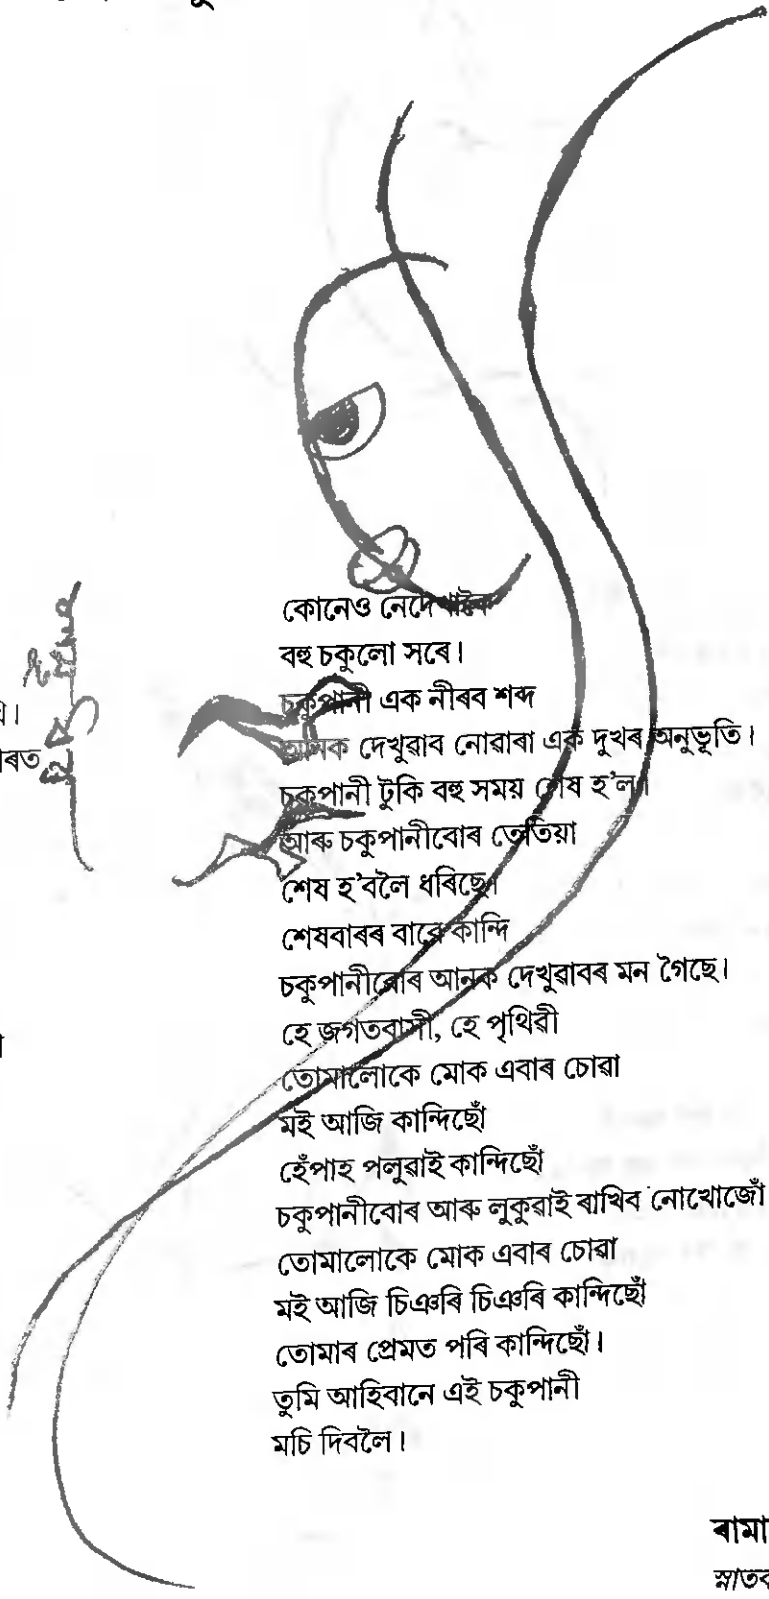 কোনেও নেদেখাকৈ
বহু চকুলো সৰে।
চকুপানী এক নীৰৱ শব্দ
আনক দেখুৱাব নোৱাৰা এক দুখৰ অনুভূতি।
চকুপানী টুকি বহু সময় শেষ হ'ল।
আৰু চকুপানীবোৰ তেতিয়া
শেষ হ'বলৈ ধৰিছে।
শেষবাৰৰ বাবে কান্দি
চকুপানীবোৰ আনক দেখুৱাবৰ মন গৈছে।
হে জগতবাসী, হে পৃথিৱী
তোমালোকে মোক এবাৰ চোৱা
মই আজি কান্দিছোঁ
হেঁপাহ পলুৱাই কান্দিছোঁ
চকুপানীবোৰ আৰু লুকুৱাই ৰাখিব নোখোজোঁ
তোমালোকে মোক এবাৰ চোৱা
মই আজি চিঞৰি চিঞৰি কান্দিছোঁ
তোমাৰ প্ৰেমত পৰি কান্দিছোঁ।
তুমি আহিবানে এই চকুপানী
মচি দিবলৈ।
ৰামা
স্নাতক